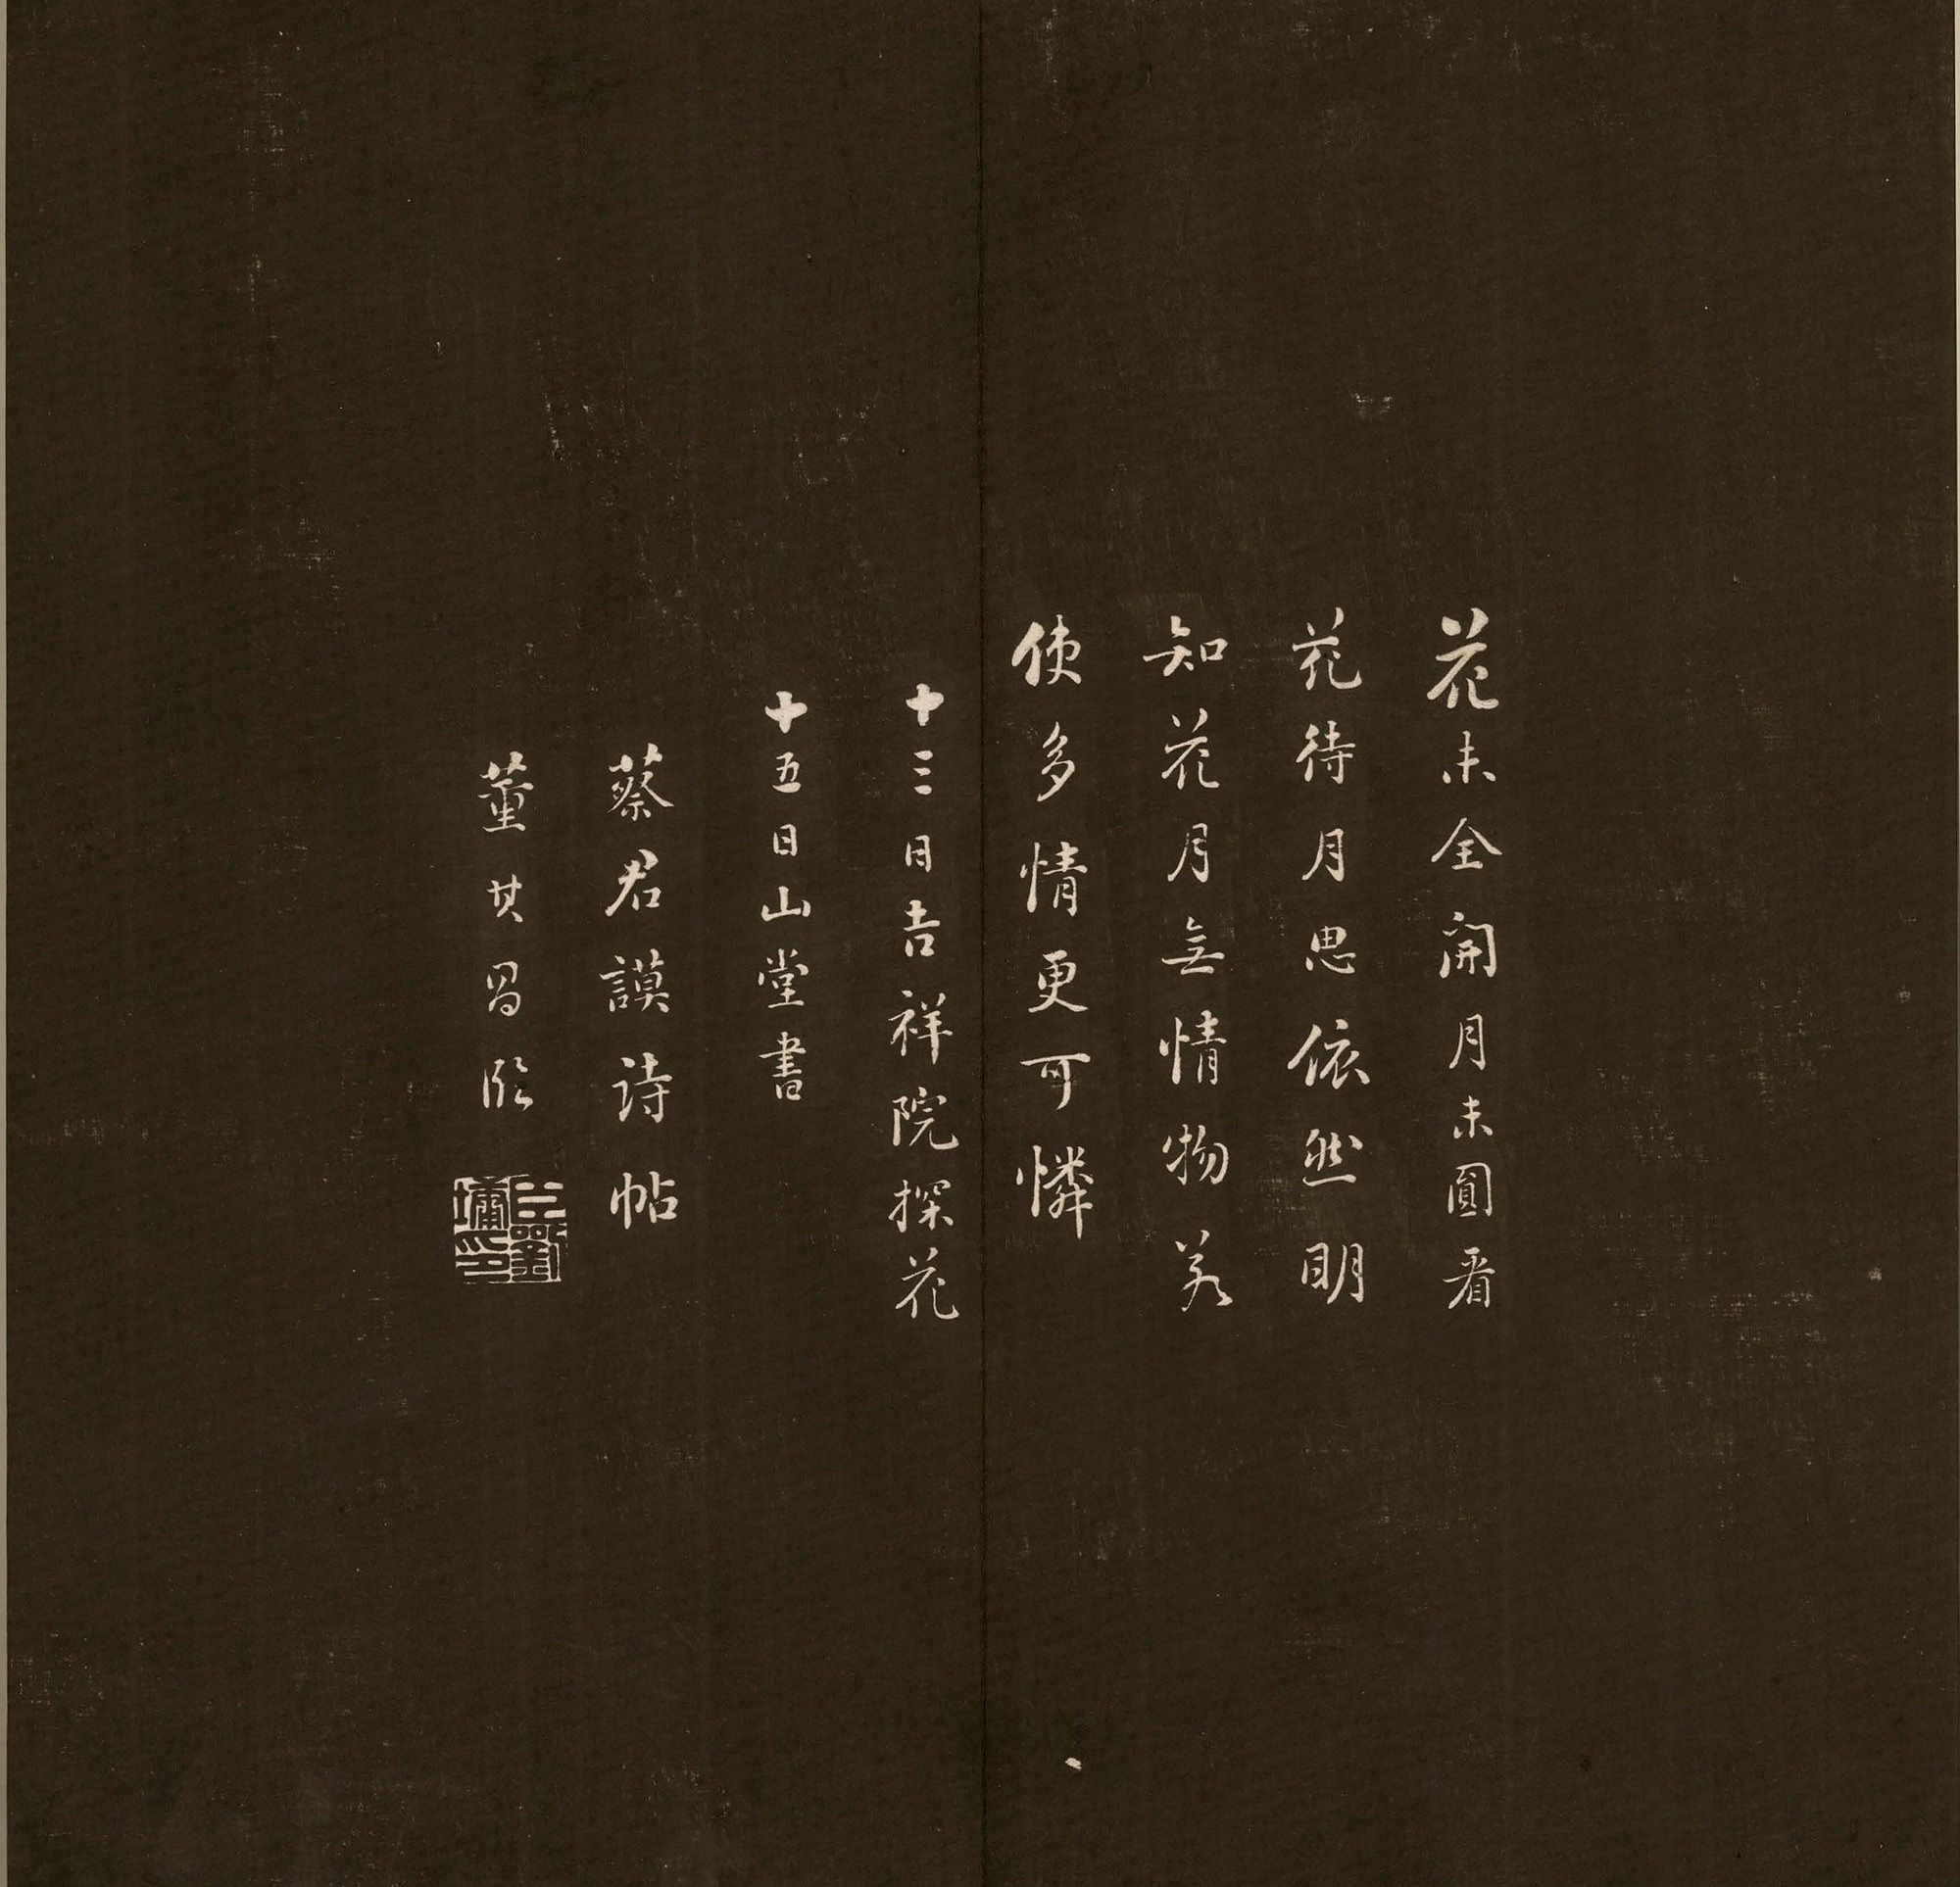 花未全開月未圓看
花待月思依然明
知花月無情物若
使多情更可憐
十三日吉祥院探花
十五日山堂書
蔡君謨詩帖
董其昌臨